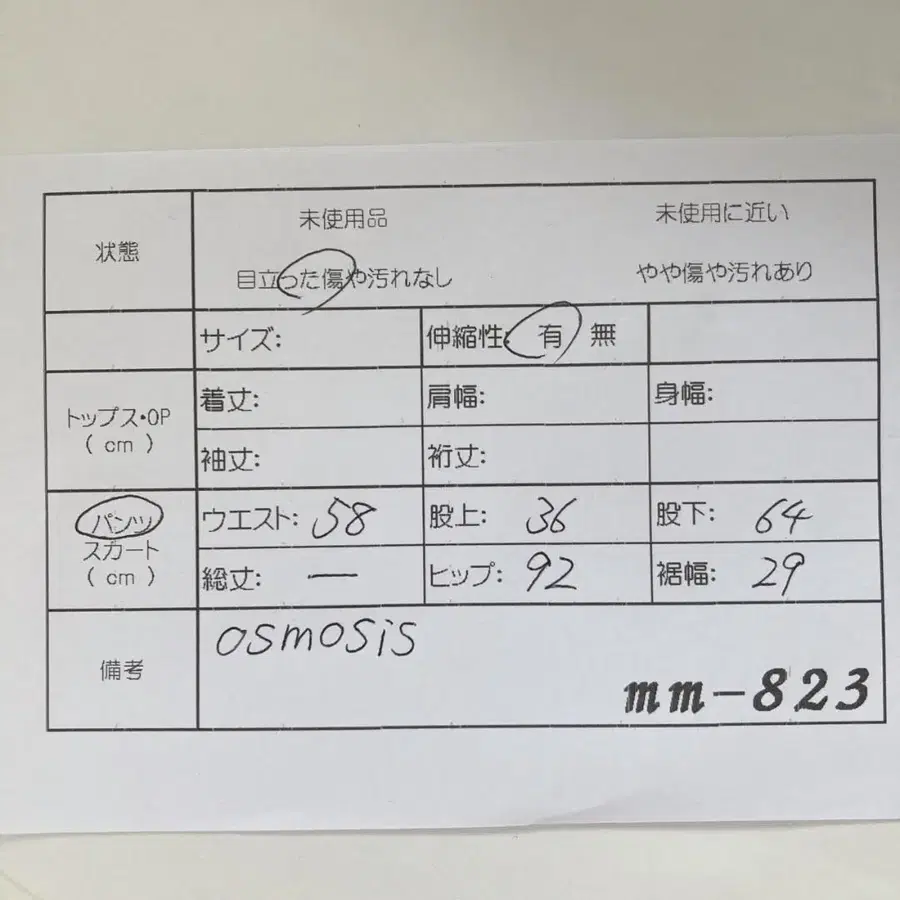 状態
未使用品 未使用に近い
目立った傷や汚れなし やや傷や汚れあり
サイズ: 伸縮性: 有 無
トップス・OP
( cm )
着丈: 肩幅: 身幅:
袖丈: 裄丈:
パンツ
スカート
( cm )
ウエスト: 58 股上: 36 股下: 64
総丈: ― ヒップ: 92 裾幅: 29
備考
osmosis
mm-823